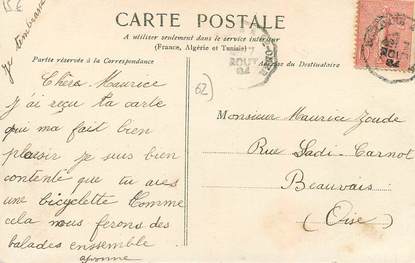 15 €
CARTE POSTALE
A utiliser seulement dans le service intérieur
(France, Algérie et Tunisie)
Partie réservée à la Correspondance
Adresse du Destinataire
62
je t'embrasse
Chère Maurice
j'ai reçu ta carte
qui ma fait bien
plaisir je suis bien
contente que tu aies
une bicyclette Comme
cela nous ferons des
balades enssemble
Yvonne
Monsieur Maurice
Rue Sadi-Carnot
Beauvais
(Oise)